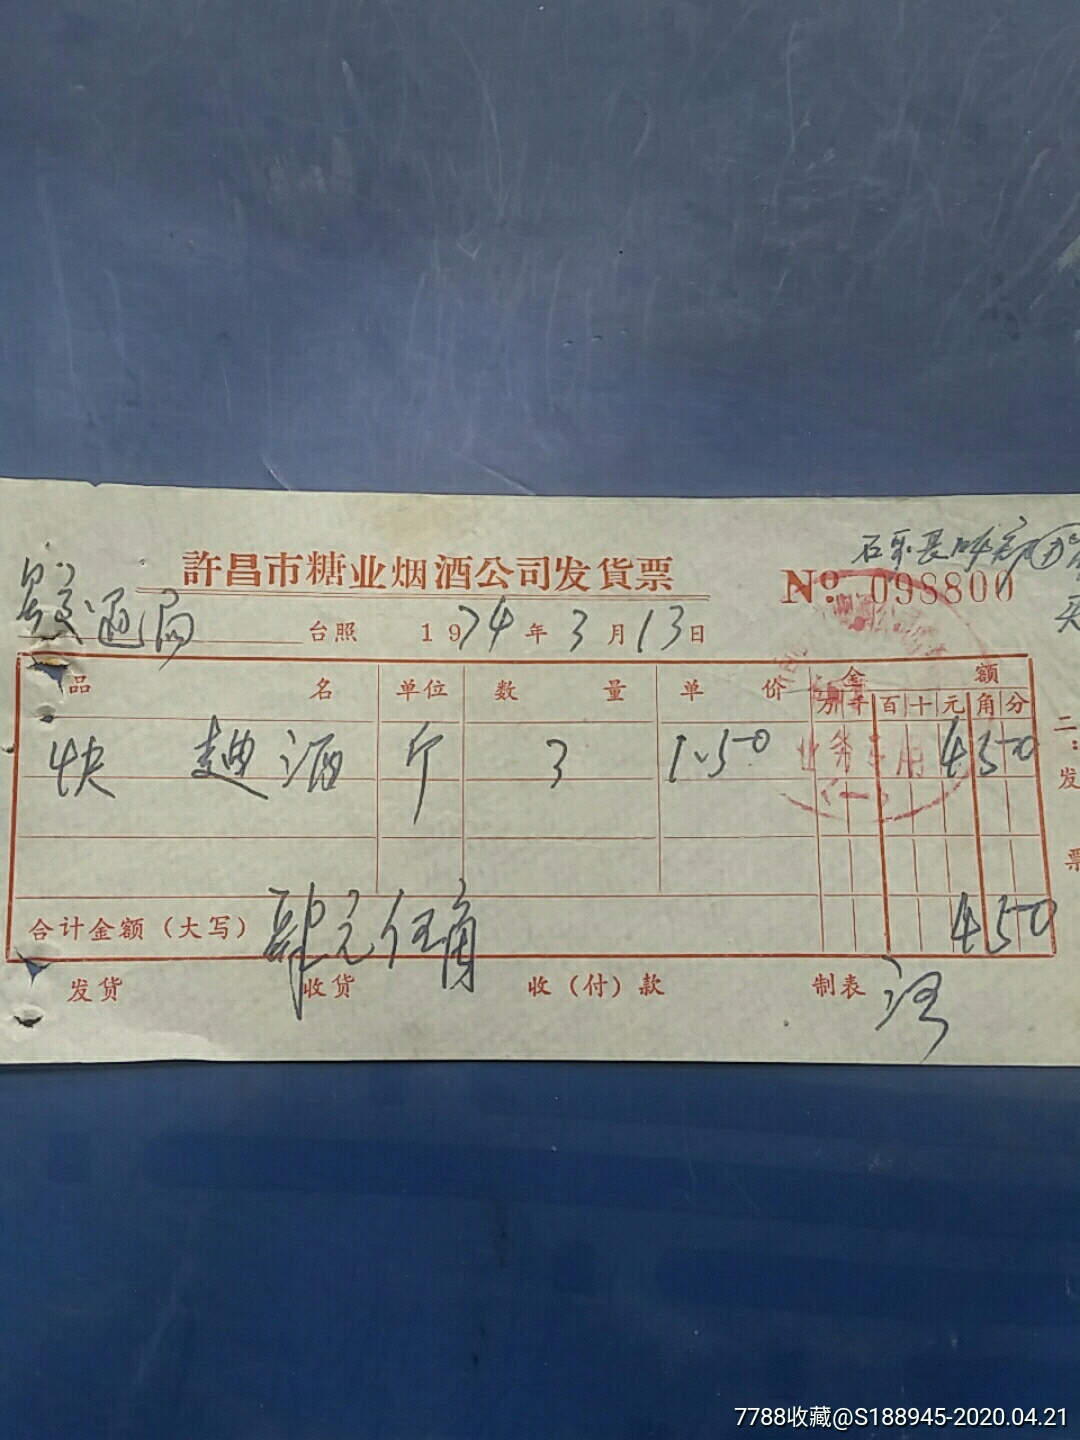 許昌市糖业烟酒公司发货票
№ 098800
交通局 台照 1974年3月13日
品名 单位 数量 单价 金额
万 千 百 十 元 角 分
快 曲酒 斤 3 1.50 4 5 0
业务专用
(一)
合计金额(大写) 肆元伍角 4 5 0
发货 收货 收(付)款 制表
二:发票
7788收藏@S188945-2020.04.21